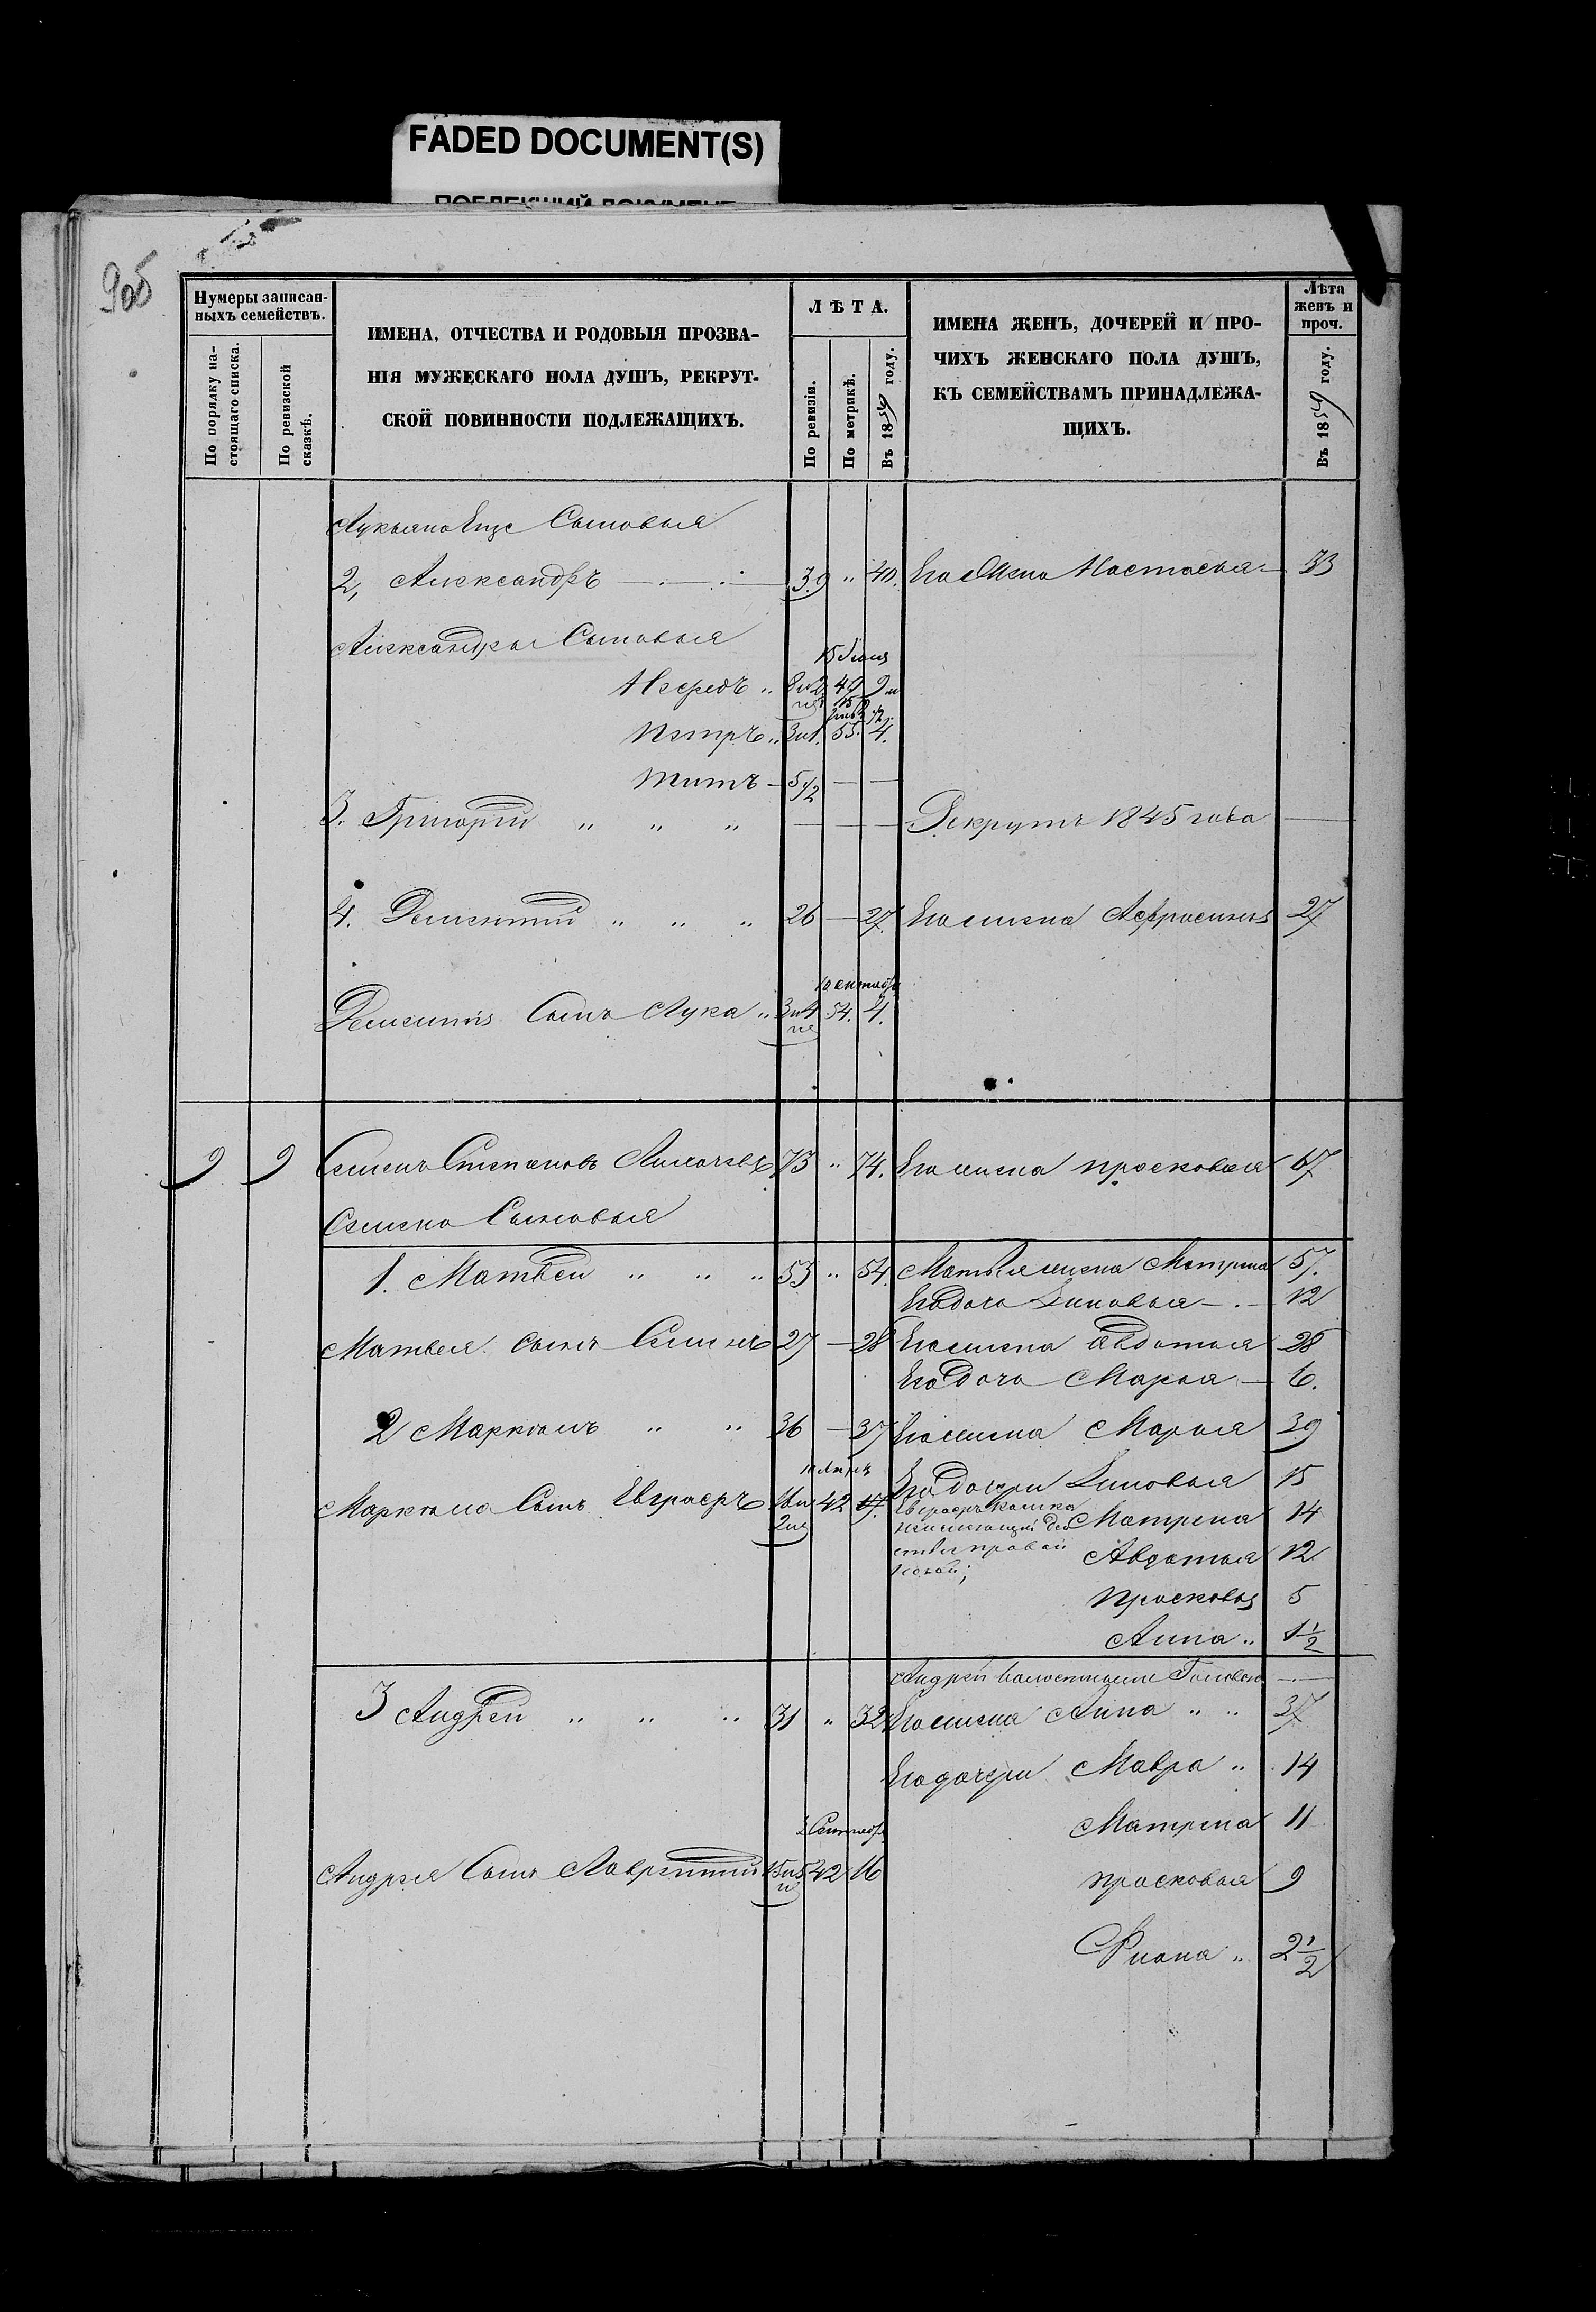 FADED DOCUMENT(S)
9об
Нумеры записан-
ныхъ семействъ.
По порядку на-
стоящаго списка.
По ревизской
сказкѣ.
ИМЕНА, ОТЧЕСТВА И РОДОВЫЯ ПРОЗВА-
НІЯ МУЖЕСКАГО ПОЛА ДУШЪ, РЕКРУТ-
СКОЙ ПОВИННОСТИ ПОДЛЕЖАЩИХЪ.
ЛѢТА.
По ревизіи.
По метрикѣ.
Въ 1859 году.
ИМЕНА ЖЕНЪ, ДОЧЕРЕЙ И ПРО-
ЧИХЪ ЖЕНСКАГО ПОЛА ДУШЪ,
КЪ СЕМЕЙСТВАМЪ ПРИНАДЛЕЖА-
ЩИХЪ.
Лѣта
женъ и
проч.
Въ 1859 году.
Лукьяна Еще Сыновья
2, Александръ 39 " 40. Его Жена Настасья 33
Александра Сыновья
15 49 9
Петръ " 3 и 1. 55. 4.
Титъ 5 1/2 — —
3. Григорій " " " — — — Рекрутъ 1845 года —
4. Дементій " " " 26 — 27. Его жена Афросинья 27
Дементія Сынъ Лука " 3 и 4 54. 4.
9 9 Семенъ Степановъ 73 " 74. Его жена Просковья 67
Семена Сыновья
1. Матвей " " " 53 " 54 Матвея жена Матрена 57.
Его дочь Зиновья 12
Матвея сынъ Семенъ 27 — 28 Его жена Авдотья 28
Его дочь Марья — 6.
2 Маркелъ " " 36 — 37 Его жена Марья 39
Его дочери Зиновья 15
Маркела Сынъ Евграфъ 16 и 2 42 17. Матрена 14
Евграфъ
правой
Авдотья 12
Просковья 5
Анна " 1 1/2
Андрей Головою —
3 Андрей " " " 31 " 32 Его жена Анна " " 37
Его дочери Мавра " 14
Матрена 11
Андрея Сынъ Лаврентий 15 и 5 42 16 Просковья 9
2 1/2